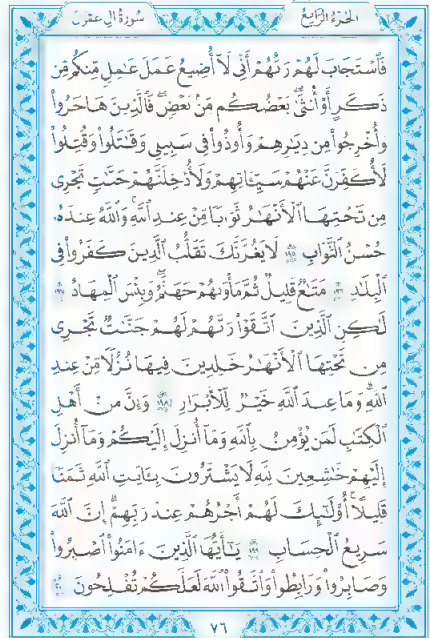 الجزء الرابع سورة آل عمران
فَٱسْتَجَابَ لَهُمْ رَبُّهُمْ أَنِّى لَآ أُضِيعُ عَمَلَ عَٰمِلٍ مِّنكُم مِّن
ذَكَرٍ أَوْ أُنثَىٰ ۖ بَعْضُكُم مِّنۢ بَعْضٍ ۖ فَٱلَّذِينَ هَاجَرُوا۟
وَأُخْرِجُوا۟ مِن دِيَٰرِهِمْ وَأُوذُوا۟ فِى سَبِيلِى وَقَٰتَلُوا۟ وَقُتِلُوا۟
لَأُكَفِّرَنَّ عَنْهُمْ سَيِّـَٔاتِهِمْ وَلَأُدْخِلَنَّهُمْ جَنَّٰتٍ تَجْرِى
مِن تَحْتِهَا ٱلْأَنْهَٰرُ ثَوَابًا مِّنْ عِندِ ٱللَّهِ ۗ وَٱللَّهُ عِندَهُۥ
حُسْنُ ٱلثَّوَابِ ١٩٥ لَا يَغُرَّنَّكَ تَقَلُّبُ ٱلَّذِينَ كَفَرُوا۟ فِى
ٱلْبِلَٰدِ ١٩٦ مَتَٰعٌ قَلِيلٌ ثُمَّ مَأْوَىٰهُمْ جَهَنَّمُ ۚ وَبِئْسَ ٱلْمِهَادُ ١٩٧
لَٰكِنِ ٱلَّذِينَ ٱتَّقَوْا۟ رَبَّهُمْ لَهُمْ جَنَّٰتٌ تَجْرِى
مِن تَحْتِهَا ٱلْأَنْهَٰرُ خَٰلِدِينَ فِيهَا نُزُلًا مِّنْ عِندِ
ٱللَّهِ ۗ وَمَا عِندَ ٱللَّهِ خَيْرٌ لِّلْأَبْرَارِ ١٩٨ وَإِنَّ مِنْ أَهْلِ
ٱلْكِتَٰبِ لَمَن يُؤْمِنُ بِٱللَّهِ وَمَآ أُنزِلَ إِلَيْكُمْ وَمَآ أُنزِلَ
إِلَيْهِمْ خَٰشِعِينَ لِلَّهِ لَا يَشْتَرُونَ بِـَٔايَٰتِ ٱللَّهِ ثَمَنًا
قَلِيلًا ۗ أُو۟لَٰٓئِكَ لَهُمْ أَجْرُهُمْ عِندَ رَبِّهِمْ ۗ إِنَّ ٱللَّهَ
سَرِيعُ ٱلْحِسَابِ ١٩٩ يَٰٓأَيُّهَا ٱلَّذِينَ ءَامَنُوا۟ ٱصْبِرُوا۟
وَصَابِرُوا۟ وَرَابِطُوا۟ وَٱتَّقُوا۟ ٱللَّهَ لَعَلَّكُمْ تُفْلِحُونَ ٢٠٠
٧٦